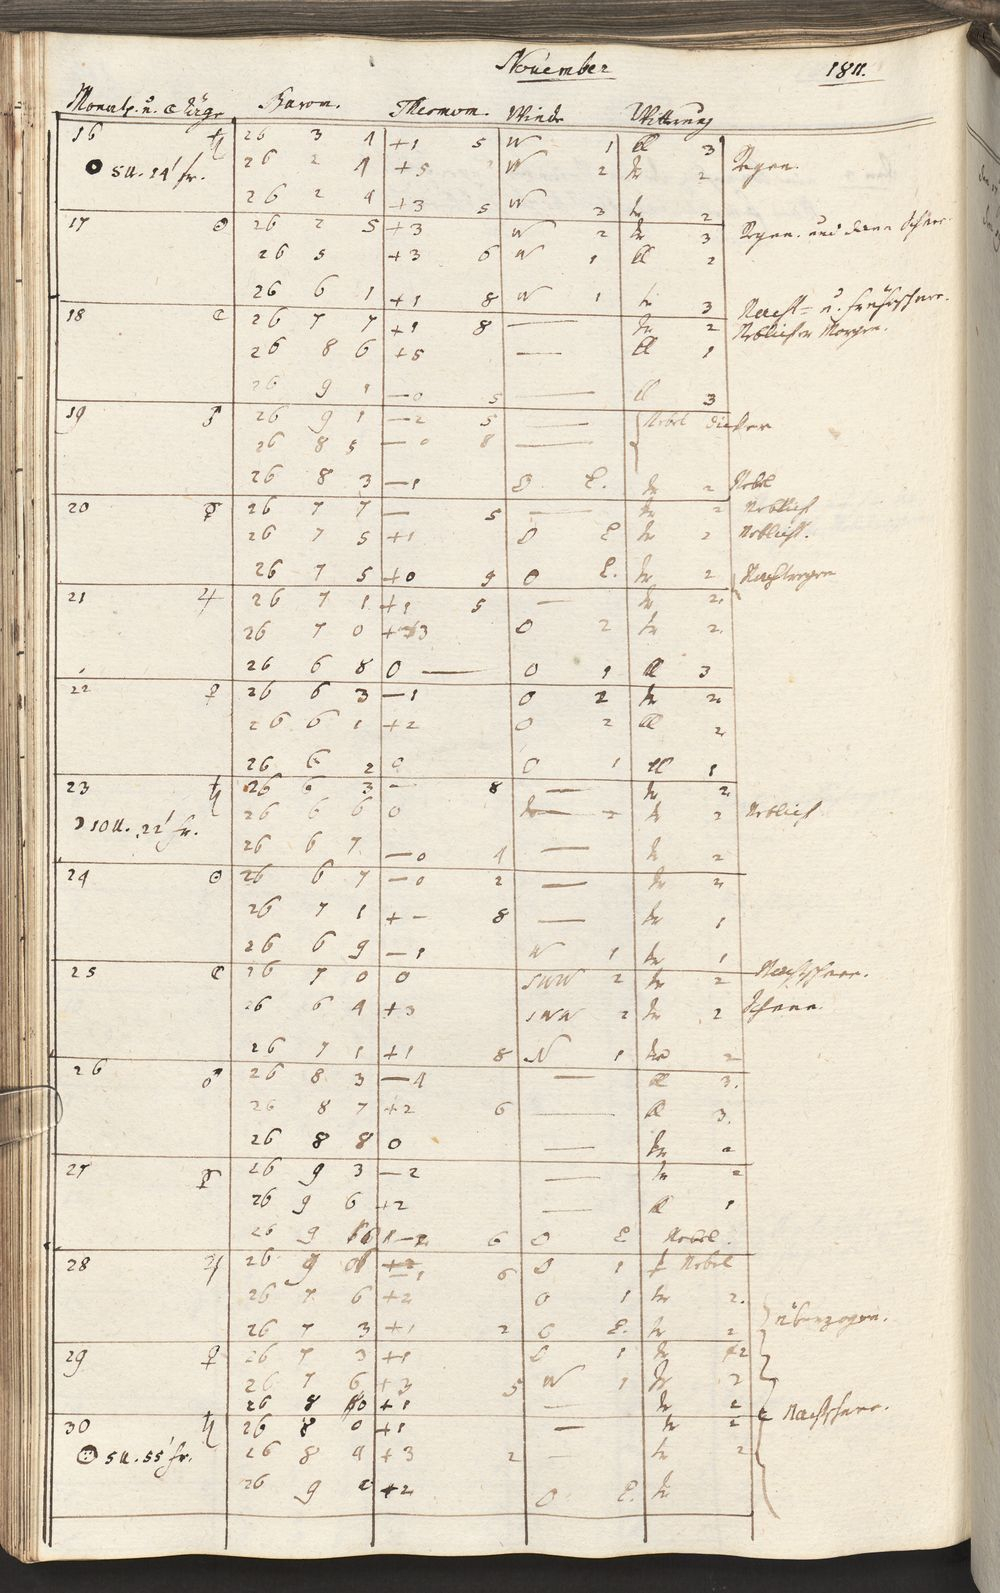 November 1811.
Barom. Thermom. Winde Wittrung
16 ♄ 26 3 4 +1 5 W 1 ll 3
5 U. 24' fr. 26 2 4 +5 W 2 tr 2 Regen.
26 2 4 +3 5 W 3 tr 2
17 ☉ 26 2 5 +3 W 2 tr 3 Regen. und dann Schnee.
26 5 +3 6 W 1 ll 2
26 6 1 +1 8 W 1 tr 3 Nacht= u. Frühschnee.
18 ☾ 26 7 7 +1 8 — tr 2 Neblichter Morgen.
26 8 6 +5 — ll 1
26 9 1 —0 5 — ll 3
19 ♂ 26 9 1 —2 5 — Nebel dicker
26 8 5 —0 8 —
26 8 3 —1 O L. tr 2 Nebel
20 ☿ 26 7 7 — 5 — tr 2 Neblicht
26 7 5 +1 O L tr 2 Neblicht.
26 7 5 +0 9 O L. tr 2 Nachtregen
21 ♃ 26 7 1 +1 5 — tr 2
26 7 0 +3 O 2 tr 2
26 6 8 0 — O 1 ll 3
22 ♀ 26 6 3 —1 O 2 tr 2
26 6 1 +2 O 2 ll 2
26 6 2 0 O 1 ll 1
23 ♄ 26 6 3 — 8 — tr 2
☽ 10 U. 22' fr. 26 6 6 0 — 2 tr 2 Neblich
26 6 7 —0 4 — tr 2
24 ☉ 26 6 7 —0 2 — tr 2
26 7 1 +— 8 — tr 1
26 6 9 —1 W 1 tr 1
25 ☾ 26 7 0 0 SWW 2 tr 2 Nachtschnee.
26 6 4 +3 SWW 2 tr 2 Schnee.
26 7 1 +1 8 N 1 tr 2
26 ♂ 26 8 3 —4 — ll 3.
26 8 7 +2 6 — ll 3.
26 8 8 0 — tr 2
27 ☿ 26 9 3 —2 — tr 2
26 9 6 +2 — ll 1
26 9 6 —2 6 O L Nebel.
28 ♃ 26 9 —1 6 O 1 Nebel
26 7 6 +2 O 1 tr 2.
26 7 3 +1 2 O L. tr 2 überzogen.
29 ♀ 26 7 3 +1 O 1 tr 2
26 7 6 +3 5 W 1 tr 2
26 8 0 +1 — tr 2 Nachtschnee.
30 ♄ 26 8 0 +1 — tr 2
5 U. 55' fr. 26 8 4 +3 2 — tr 2
26 9 2 +2 O L. tr